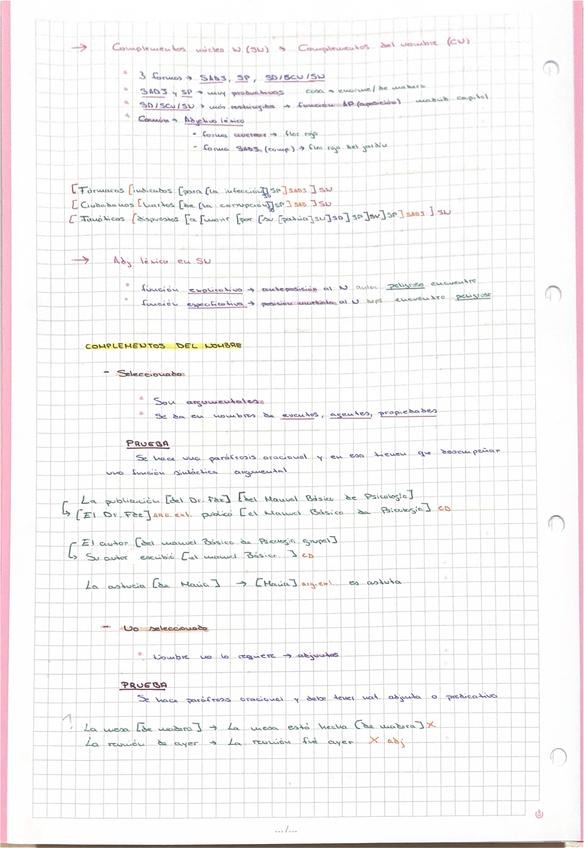 → Complementos núcleo N (SN) → Complementos del nombre (CN)
* 3 formas → SADJ, SP, SD/SCU/SN
* SADJ y SP → muy productivos casa → enorme / de madera
* SD/SCU/SN → más restringido → función AP (aposición) madrid capital
* Común → Adjetivo léxico
- forma → flor roja
- forma SADJ (comp) → flor roja del jardín
[Fármacos [indicados [para [la infección]]SP]SADJ]SN
[Ciudadanos [hartos [de [la corrupción]]SP]SAD]SN
[Fanáticos [dispuestos [a [morir [por [su [patria]SN]SD]SP]SV]SP]SADJ]SN
→ Adj léxico en SN
* función explicativa → anteposición al N peligroso encuentro
* función especificativa → posición inmediata al N encuentro peligroso
COMPLEMENTOS DEL NOMBRE
- Seleccionado
* Son argumentales
* Se da en nombres de eventos, agentes, propiedades
PRUEBA
Se hace una paráfrasis oracional y en esa tienen que desempeñar
una función sintáctica argumental
La publicación [del Dr. Fdez] [del Manual Básico de Psicología]
[El Dr. Fdez] arg. ext. publicó [el Manual Básico de Psicología] CD
El autor [del manual Básico de Psicología grupal]
Su autor escribió [el manual Básico ] CD
La astucia [de María] → [María] arg. ext. es astuta
- No seleccionado
* Nombre no lo requiere → adjuntos
PRUEBA
Se hace paráfrasis oracional y debe tener adjunta o predicativo
La mesa [de madera] → La mesa está hecha [de madera] X
La reunión de ayer → La reunión fue ayer X adj
.../...